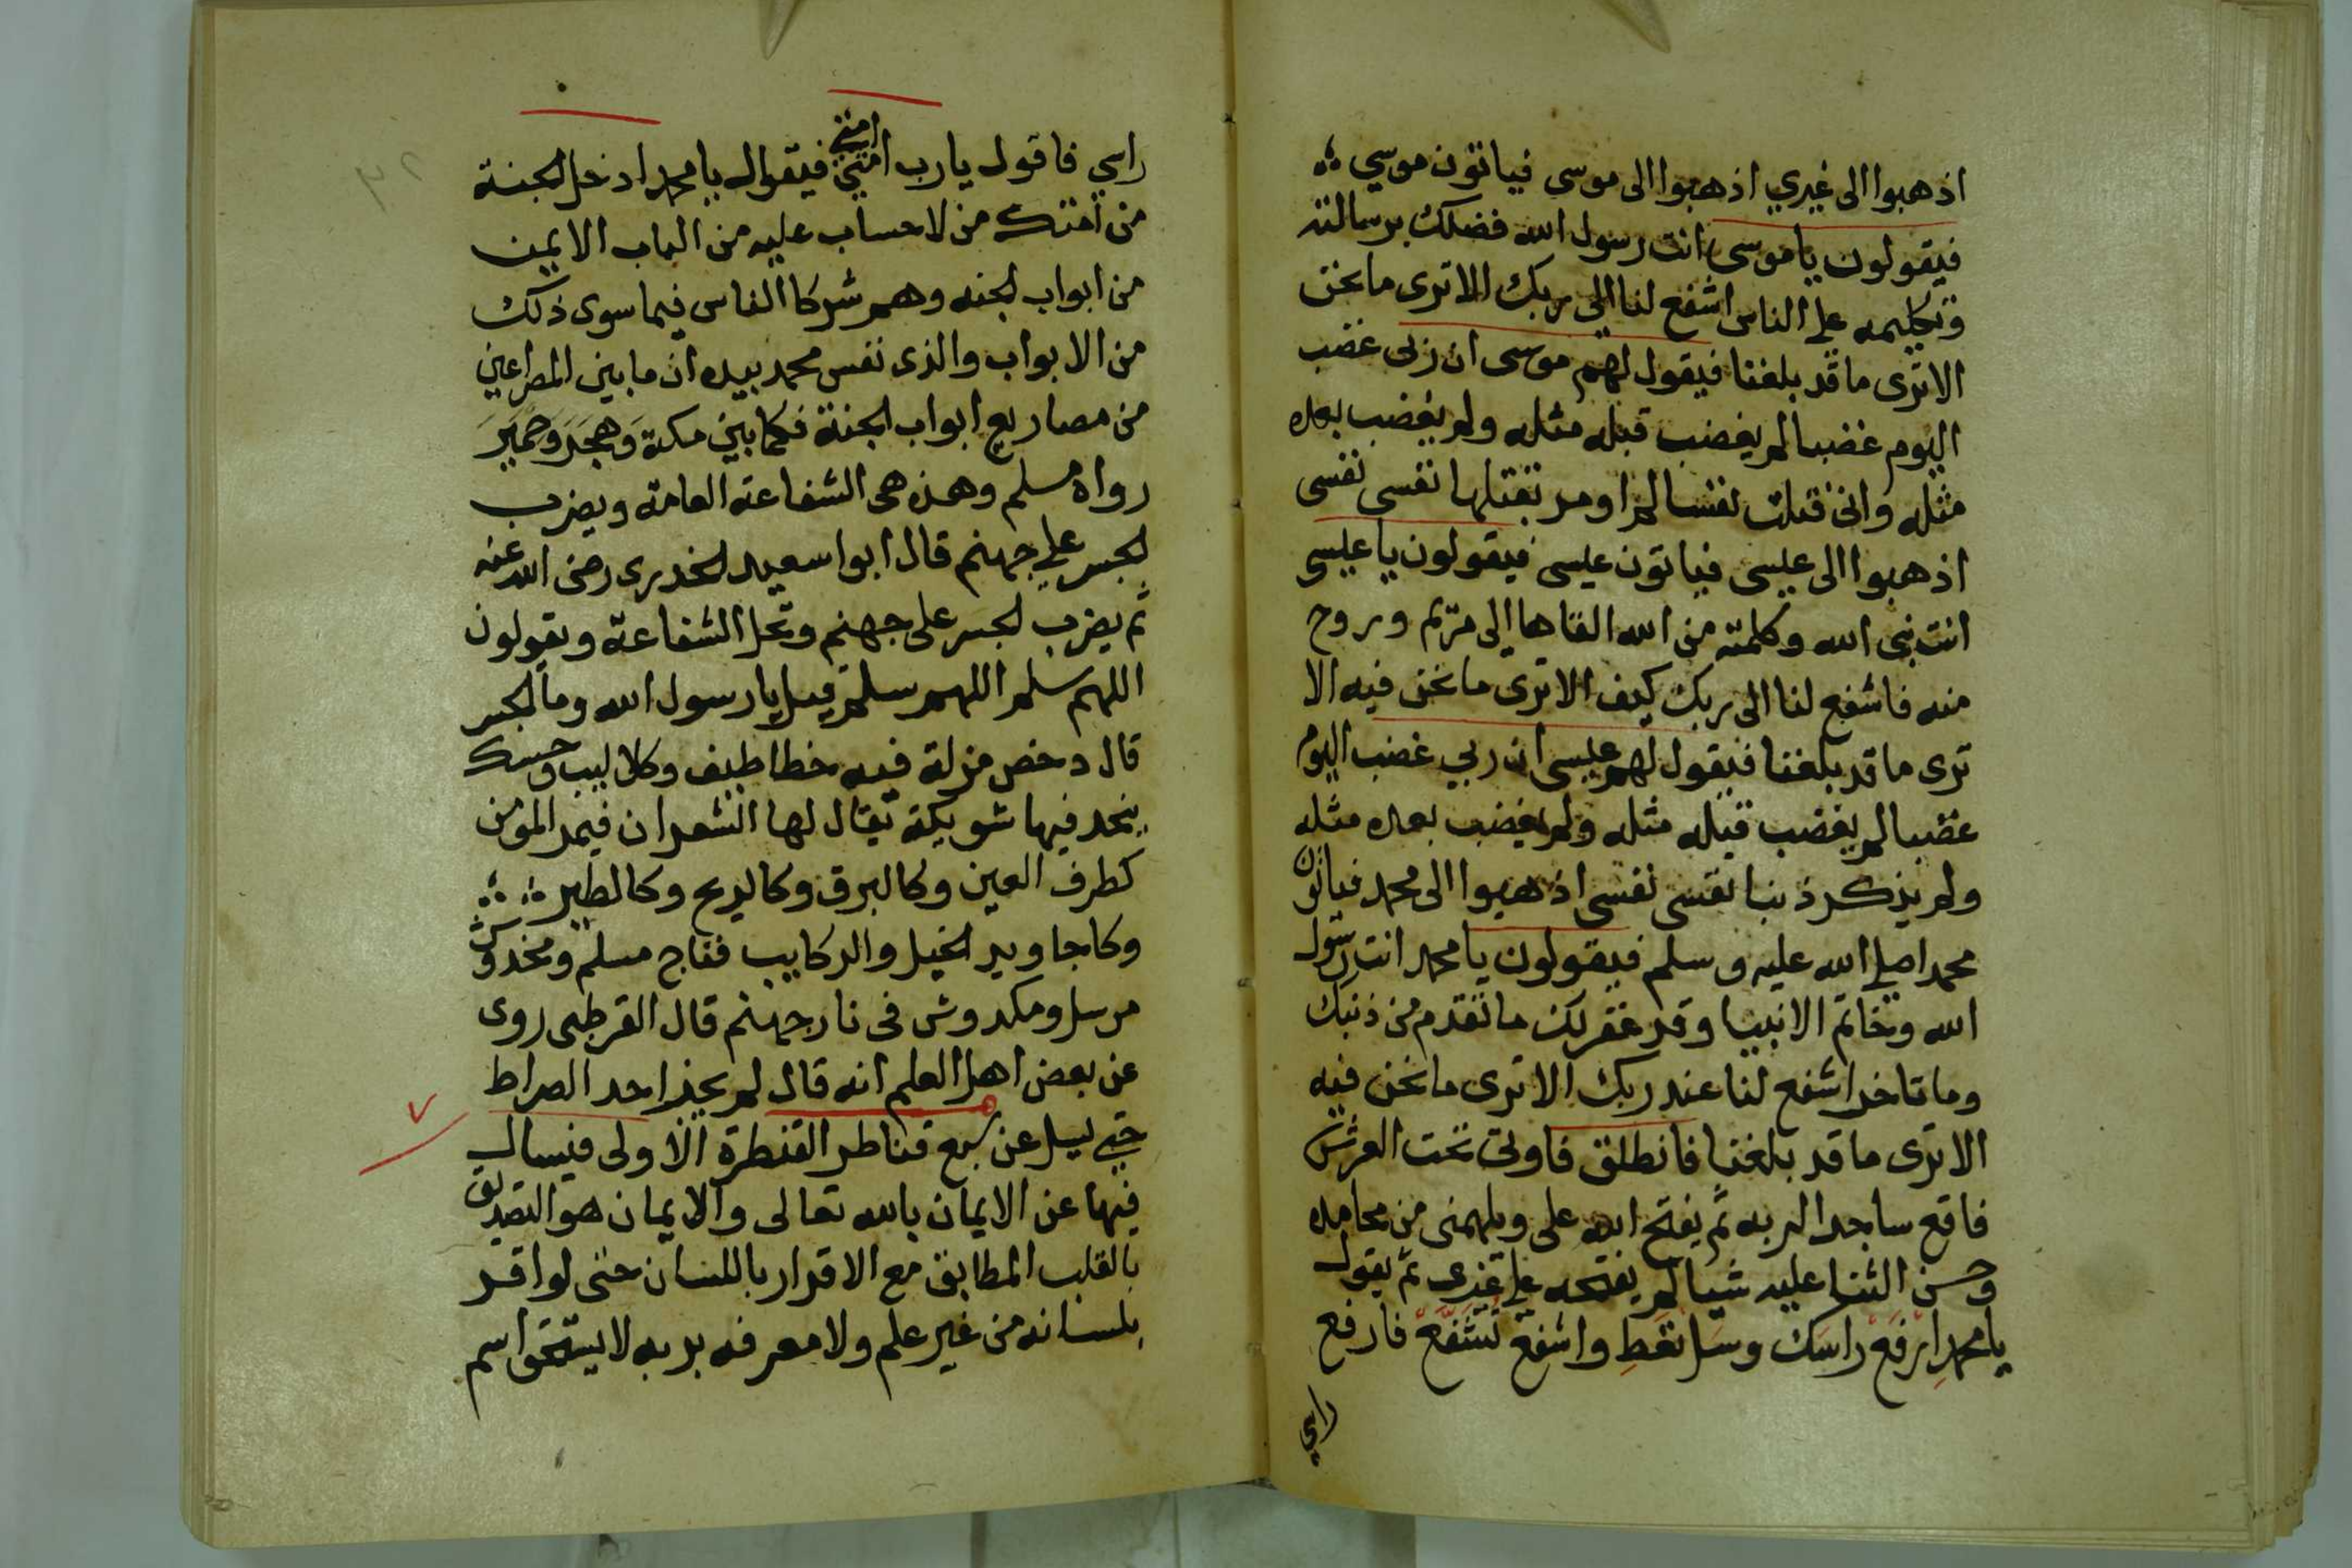 اذهبوا الى غيري اذهبوا الى موسى فياتون موسي
فيقولون ياموسى انت رسول الله فضلك برسالته
وتكليمه على الناس اشفع لنا الى ربك الا ترى ما نحن
الا ترى ما قد بلغنا فيقول لهم موسى ان ربى غضب
اليوم غضبا لم يغضب قبله مثله ولم يغضب بعده
مثله وانى قتلت نفسا لم اومر بقتلها نفسى نفسى
اذهبوا الى عيسى فياتون عيسى فيقولون يا عيسى
انت نبى الله وكلمته من الله القاها الى مريم وروح
منه فاشفع لنا الى ربك كيف الا ترى ما نحن فيه الا
ترى ما قد بلغنا فيقول لهم عيسى ان ربي غضب اليوم
غضبا لم يغضب قبله مثله ولم يغضب بعده مثله
ولم يذكر ذنبا نفسى نفسى اذهبوا الى محمد فياتون
محمدا صلى الله عليه وسلم فيقولون يا محمد انت رسول
الله وخاتم الانبيا وقد غفر لك ما تقدم من ذنبك
وما تاخر اشفع لنا عند ربك الا ترى ما نحن فيه
الا ترى ما قد بلغنا فانطلق فاوتى تحت العرش
فاقع ساجدا لربه ثم يفتح الله على ويلهمنى من محامده
وحسن الثنا عليه شيا لم يفتحه على غيرى ثم يقول
يا محمد ارفع راسك وسل تعط واشفع تشفع فارفع
راسي
راسي فاقول يارب امتي امتي فيقول يا محمد ادخل الجنة
من امتك من لا حساب عليه من الباب الايمن
من ابواب الجنه وهم شركا الناس فيما سوى ذلك
من الابواب والذى نفس محمد بيده ان ما بين المصراعين
من مصاريع ابواب الجنة فكما بين مكة وهجر وحمير
رواه مسلم وهذه هى الشفاعة العامة ويضرب
الجسر على جهنم قال ابوا سعيد الخدرى رضى الله عنه
ثم يضرب الجسر على جهنم وتحل الشفاعة ويقولون
اللهم سلم اللهم سلم قيل يا رسول الله وما الجسر
قال دحض مزلة فيه خطاطيف وكلاليب وحسك
بنجد فيها شويكة يقال لها السعدان فيمر المومن
كطرف العين وكالبرق وكالريح وكالطير
وكاجاويد الخيل والركايب فناج مسلم ومخدوش
مرسل ومكدوش فى نار جهنم قال القرطبى روى
عن بعض اهل العلم انه قال لم يجز احد الصراط
حتى يسل عن سبع قناطر القنطرة الاولى فيسال
فيها عن الايمان بالله تعالى والايمان هو التصديق
بالقلب المطابق مع الاقرار باللسان حتى لو اقر
بلسانه من غير علم ولا معرفه بربه لا يستحق اسم